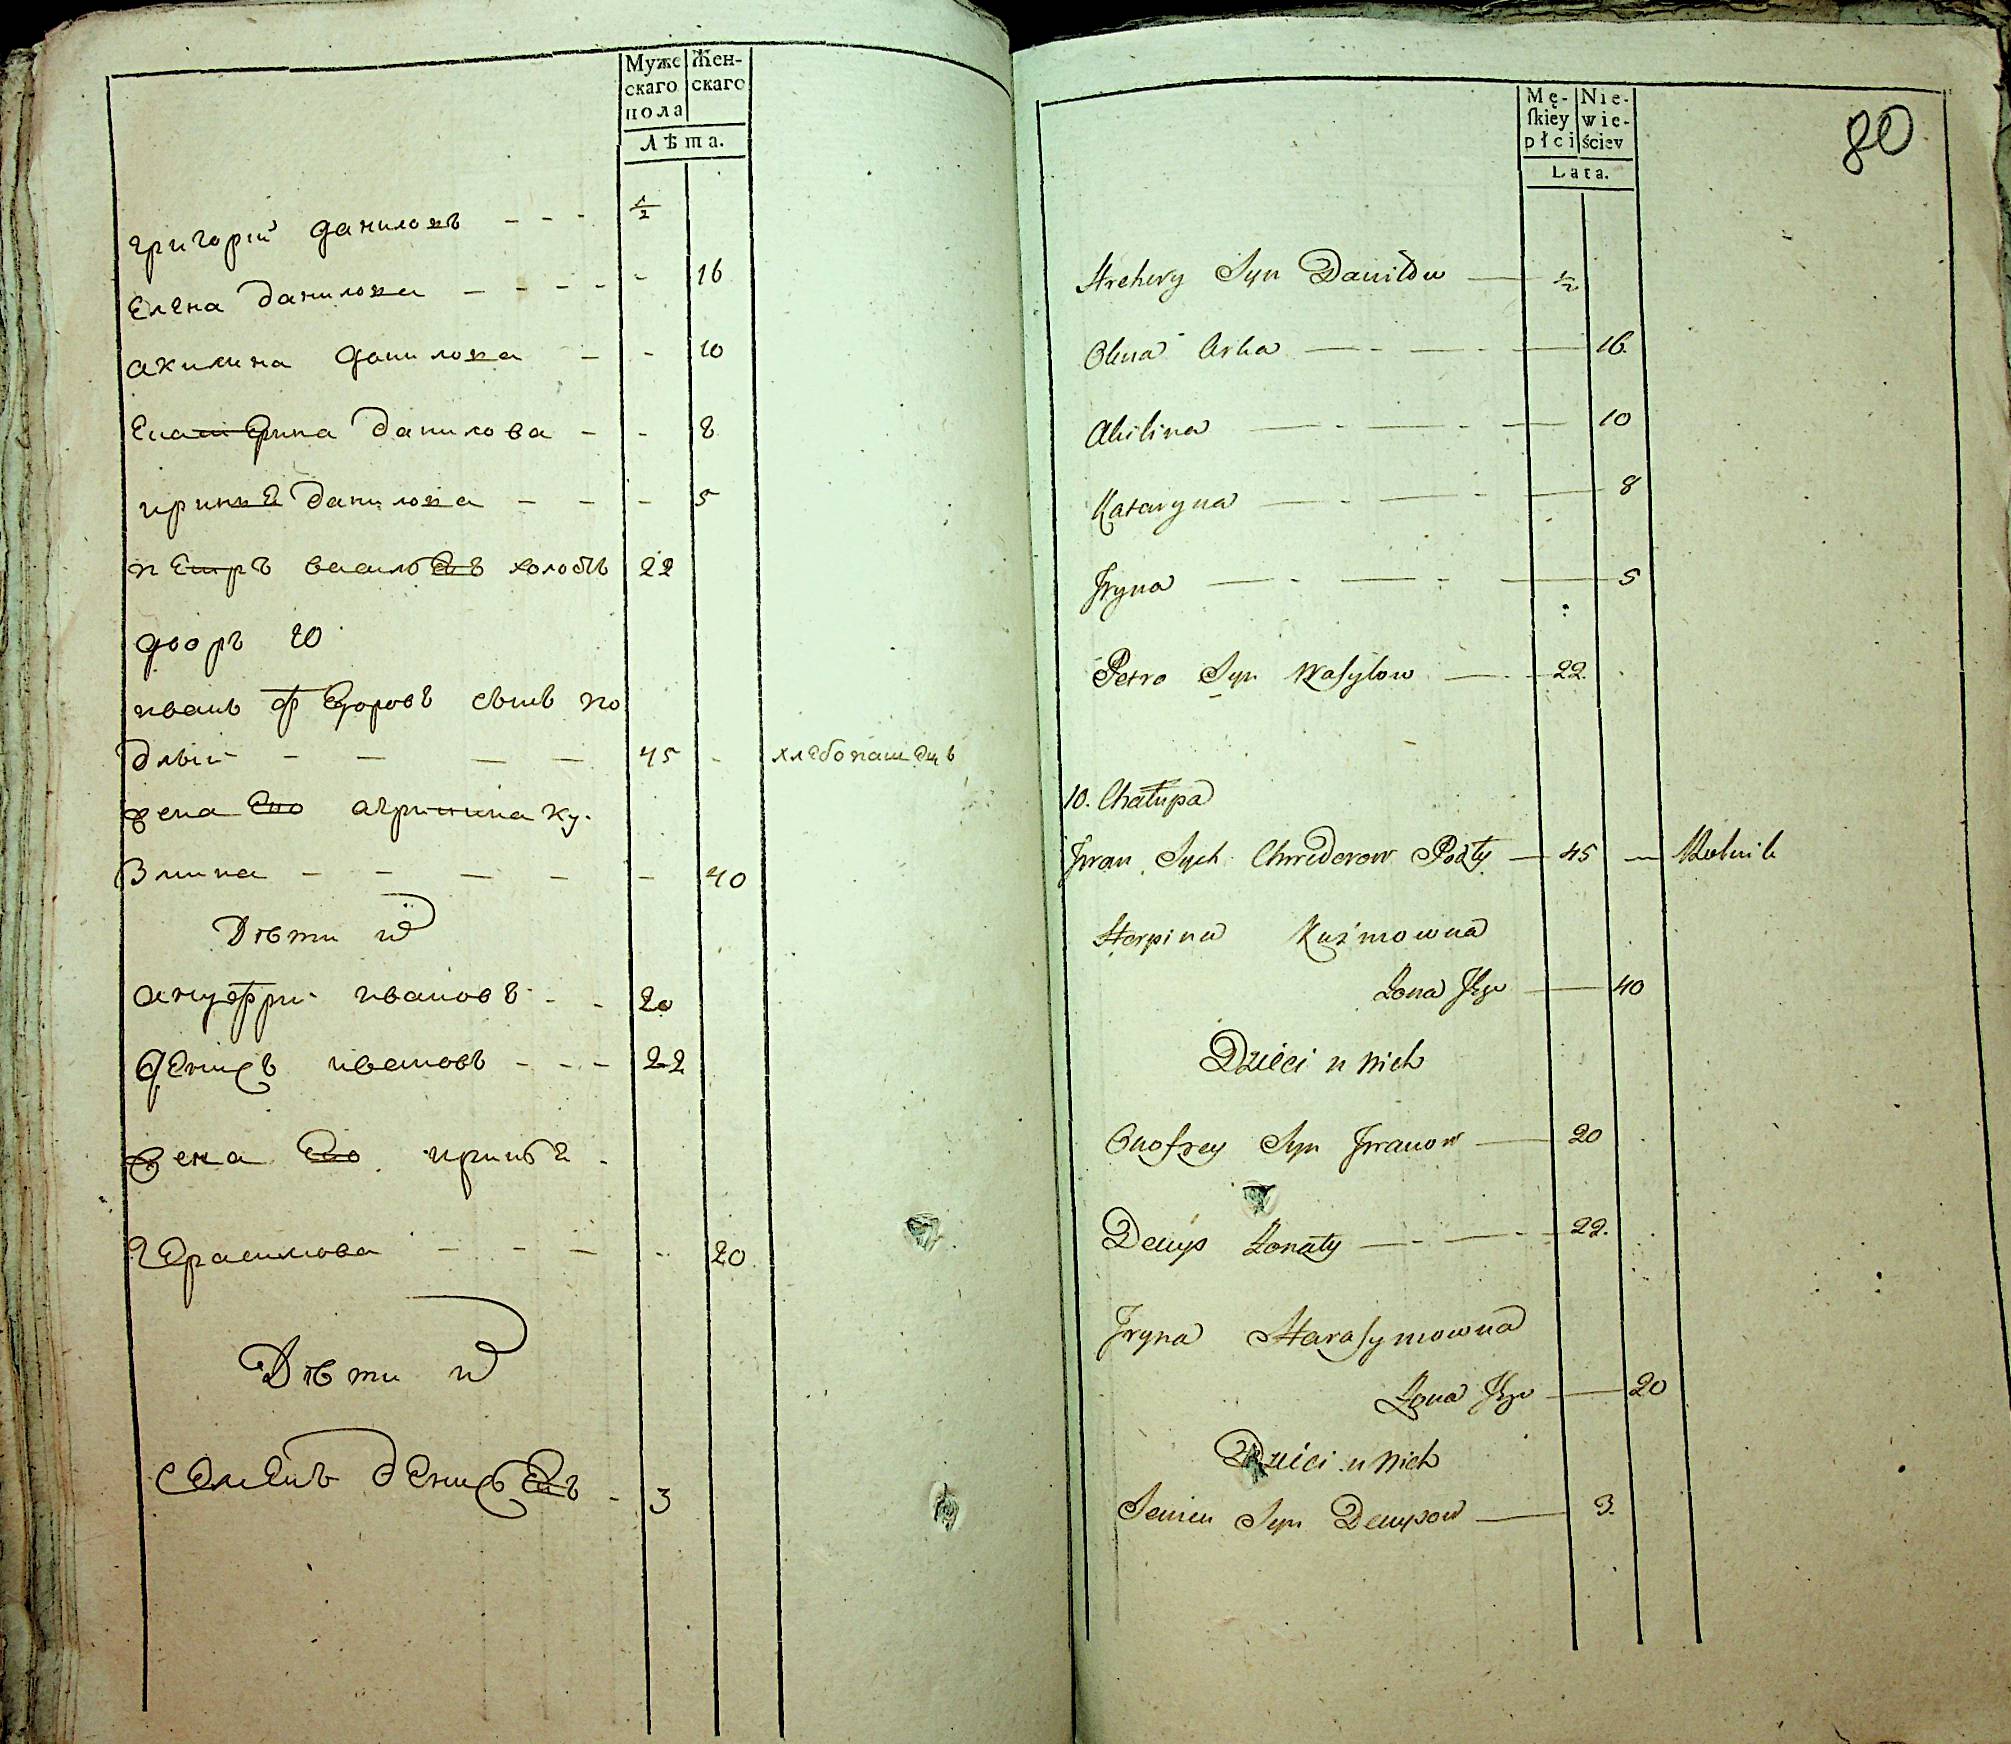 Муже
скаго
пола
Жен-
скаго
Лѣта.
григорiй данилов ½
елена данилова 16
акилина данилова 10
екатерина данилова 8
ирина данилова 5
петръ васильевъ холостъ 22
дворъ 10
иванъ федоровъ сынъ по
длый 45 хлебопашецъ
жена ево агрипина ку-
змина 40
Дѣти их
ануфри ивановъ 20
денисъ ивановъ 22
жена ево ирина
герасимова 20
Дѣти их
семенъ денисовъ 3
80
Mę-
ſkiey
płci
Nie-
wie-
ściey
Lata.
Hrehory Syn Daniłow ½
Olena Corka 16
Akilina 10
Kataryna 8
Jryna 5
Petro Syn Waſylow 22
10. Chałupa
Jwan Sych Chwedorow Podły 45 Rolnik
Horpina Kuźmowna
Zona Jego 40
Dzieci u nich
Onofrey Syn Jwanow 20
Denys Zonaty 22
Jryna Haraſymowna
Zona Jego 20
Dzieci u nich
Semen Syn Denysow 3